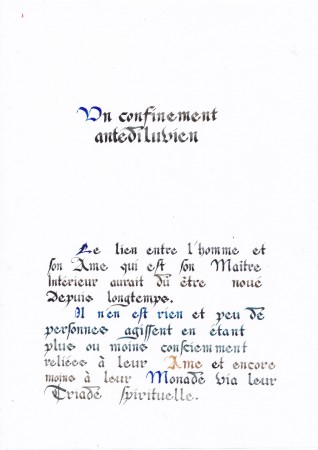 Un confinement
antediluvien
Le lien entre l'homme et
son Ame qui est son Maître
Intérieur aurait dû être noué
Depuis longtemps.
Il n'en est rien et peu de
personnes agissent en étant
plus ou moins consciemment
reliées à leur Ame et encore
moins à leur Monade via leur
Triade spirituelle.